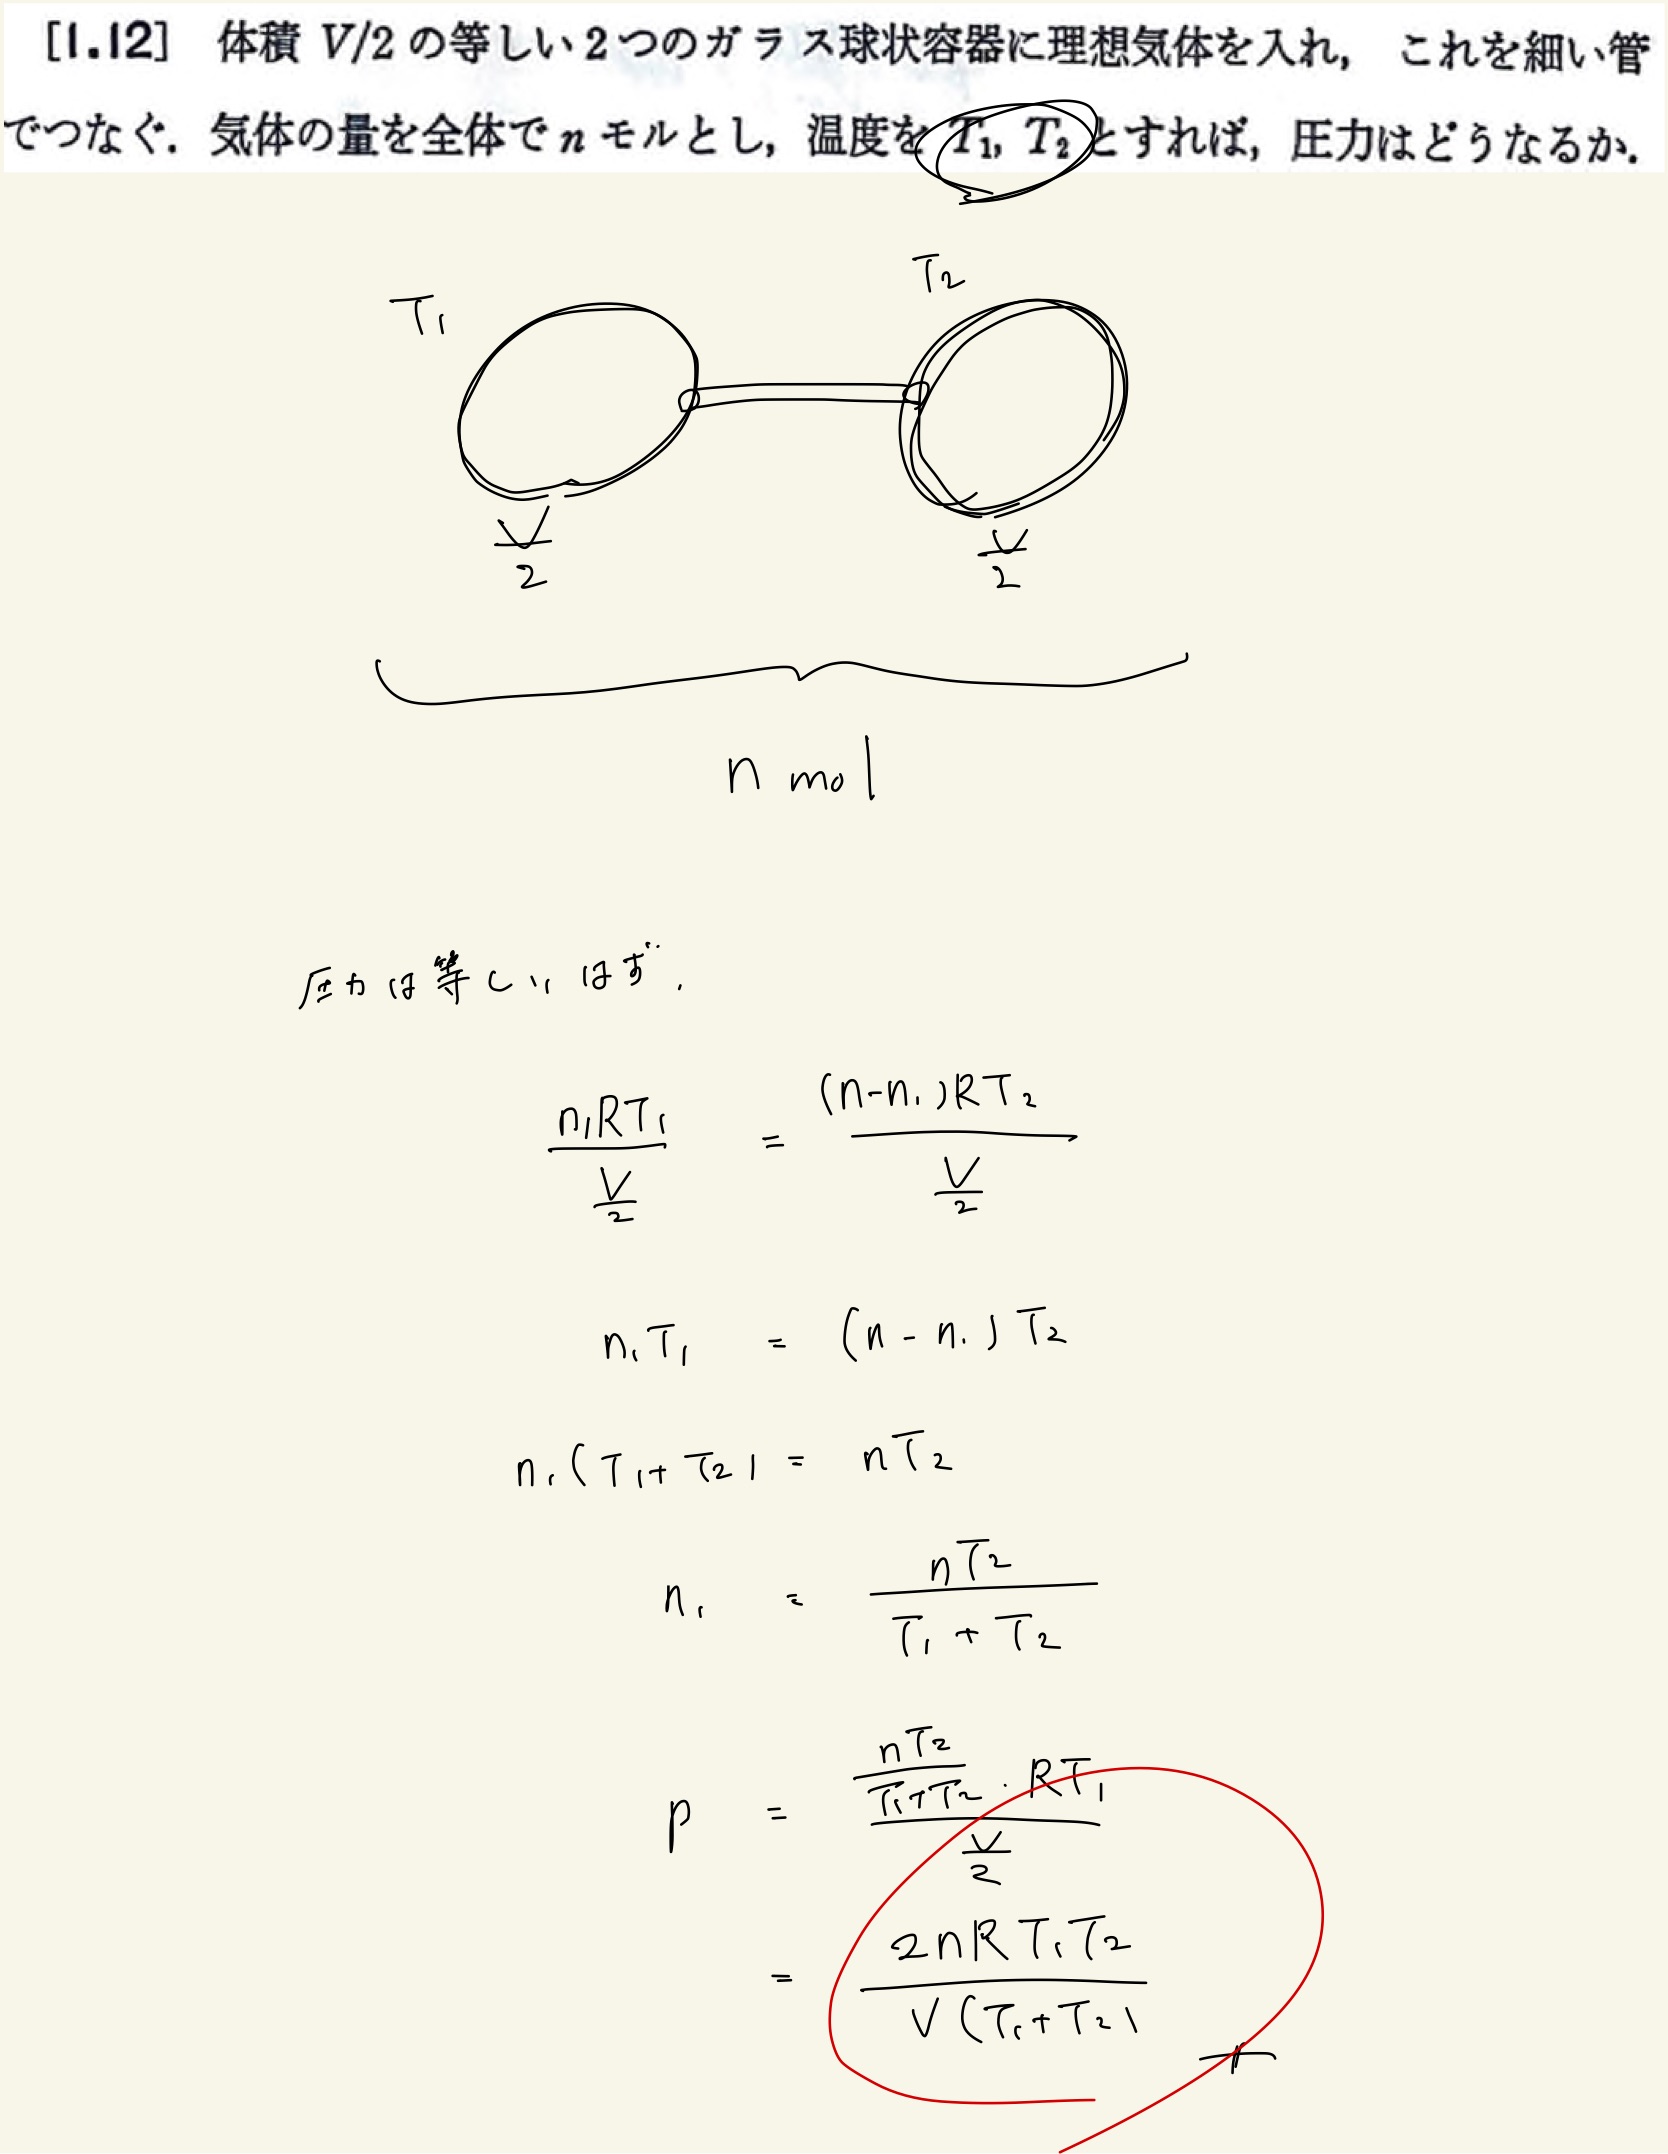 [1.12] 体積 V/2 の等しい2つのガラス球状容器に理想気体を入れ，これを細い管
でつなぐ．気体の量を全体で n モルとし，温度を T₁, T₂ とすれば，圧力はどうなるか．
T₁ T₂
V/2 V/2
n mol
圧力は等しいはず．
n₁RT₁/(V/2) = (n-n₁)RT₂/(V/2)
n₁T₁ = (n-n₁)T₂
n₁(T₁+T₂) = nT₂
n₁ = nT₂/(T₁+T₂)
p = (nT₂/(T₁+T₂)・RT₁)/(V/2)
= 2nRT₁T₂/(V(T₁+T₂))